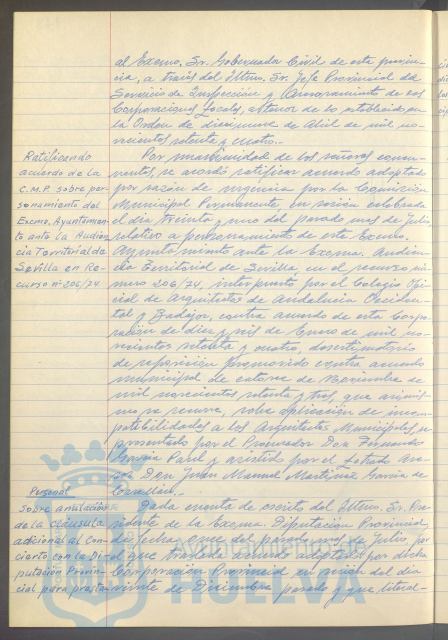 al Excmo. Sr. Gobernador Civil de esta provin-
cia, a través del Iltmo. Sr. Jefe Provincial de
Servicio de Inspección y Asesoramiento de las
Corporaciones Locales, a tenor de lo establecido en
la Orden de diecinueve de Abril de mil no-
vecientos setenta y cuatro.
Ratificando
acuerdo de la
C.M.P. sobre per-
sonamiento del
Excmo. Ayuntamien-
to ante la Audien-
cia Territorial de
Sevilla en Re-
curso nº 206/74
Por unanimidad de los señores concu-
rrentes, se acordó ratificar acuerdo adoptado
por razón de urgencia por la Comisión
Municipal Permanente en sesión celebrada
el día treinta y uno del pasado mes de Julio,
relativo a personamiento de este Excmo.
Ayuntamiento ante la Excma. Audien-
cia Territorial de Sevilla, en el recurso nú-
mero 206/74, interpuesto por el Colegio Ofi-
cial de Arquitectos de Andalucía Occiden-
tal y Badajoz, contra acuerdo de esta Corpo-
ración de diez y seis de Enero de mil no-
vecientos setenta y cuatro, desestimatorio
de reposición promovido contra acuerdo
municipal de catorce de Noviembre de
mil novecientos setenta y tres, que asimis-
mo se recurre, sobre aplicación de incom-
patibilidades a los Arquitectos Municipales,
presentado por el Procurador Don Fernando
García Paul y asistido por el Letrado Ase-
sor Don Juan Manuel Martínez García de
Personal
Sobre anulación
de la cláusula
adicional al Con-
cierto con la Di-
putación Provin-
cial para presta-
Dada cuenta de escrito del Iltmo. Sr. Pre-
sidente de la Excma. Diputación Provincial,
de fecha once del pasado mes de Julio, por
el que traslada acuerdo adoptado por dicha
Corporación Provincial en sesión del día
veinte de Diciembre pasado y que, literal-
HUELVA